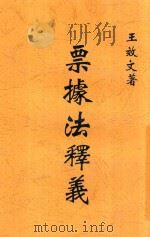 王效文著
票據法釋義
www.mtoou.info/